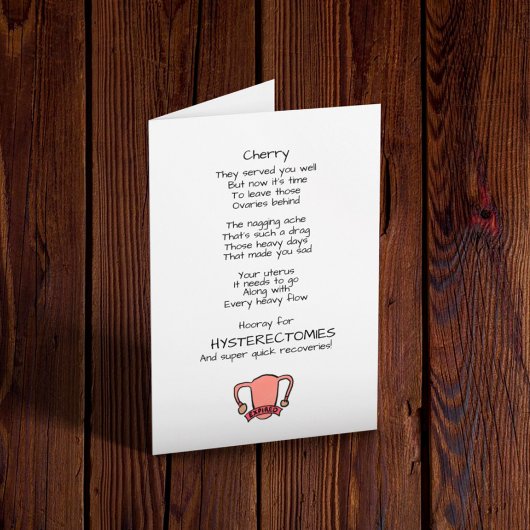 Cherry
They served you well
But now it's time
To leave those
Ovaries behind
The nagging ache
That's such a drag
Those heavy days
That made you sad
Your uterus
It needs to go
Along with
Every heavy flow
Hooray for
HYSTERECTOMIES
And super quick recoveries!
EXPIRED